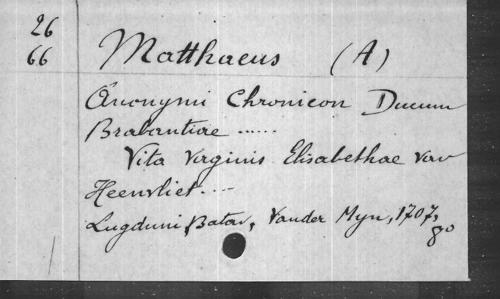 26
66
Matthaeus (A)
Anonymi Chronicon Ducum
Brabantiae ......
Vita Virginis Elisabethae van
Heenvliet....
Lugduni, Batav, Vander Myn, 1707,
8o